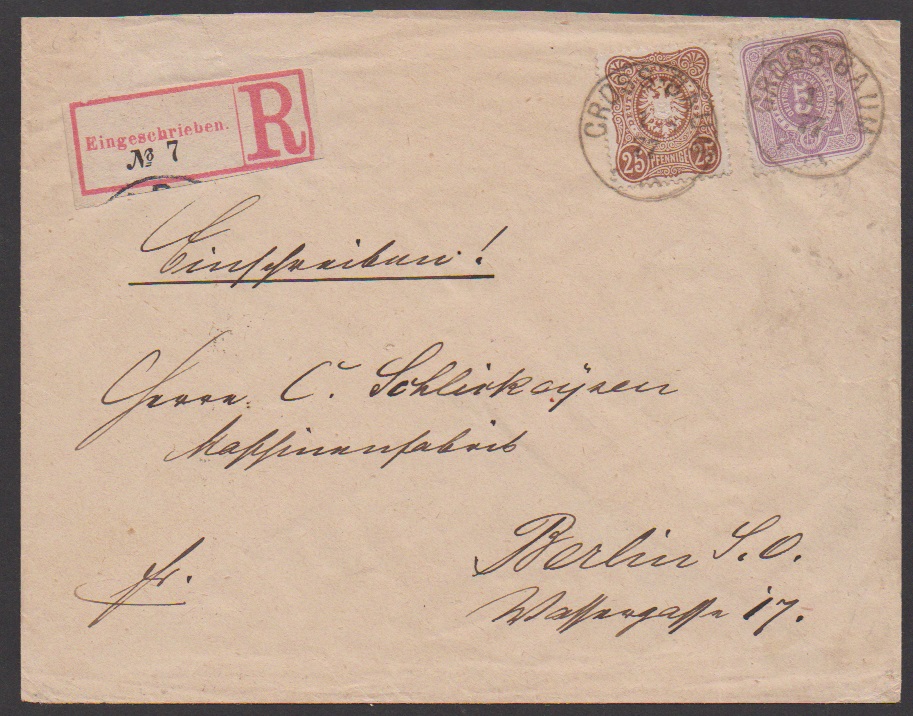 Eingeschrieben.
№ 7
R
25 PFENNIGE 25
5
GROSS-BAUM
Einschreiben!
Herrn C. Schlickeysen
Maschinenfabrik
fr.
Berlin S.O.
Wassergasse 17.